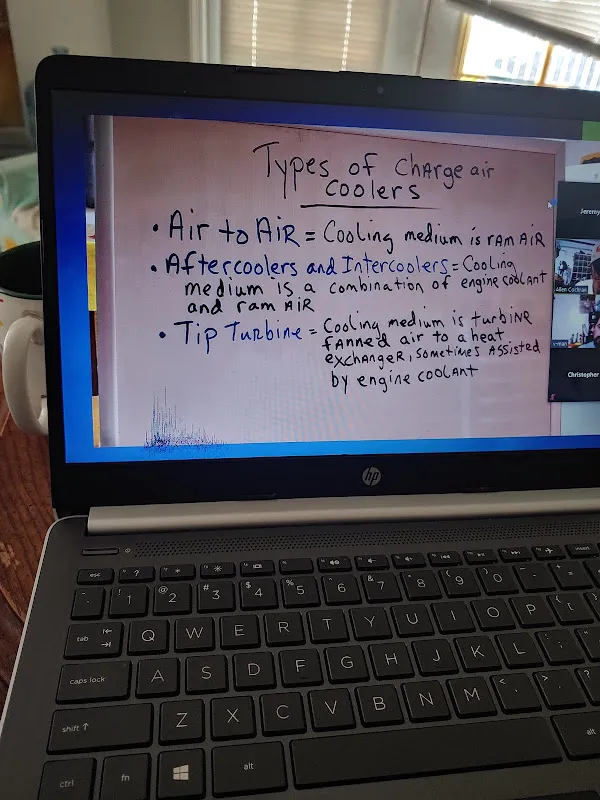 Types of Charge air
Coolers
• Air to Air = Cooling medium is ram Air
• Aftercoolers and Intercoolers = Cooling
medium is a combination of engine coolant
and ram AIR
• Tip Turbine = Cooling medium is turbine
fanned air to a heat
exchanger, sometimes Assisted
by engine coolant
Jeremy
Allen Cochran
v-man
Christopher
hp
esc
? * * 
insert
~ ! @ # $ % ^ & * ( ) _ +
1 2 3 4 5 6 7 8 9 0 - =
tab Q W E R T Y U I O P { [
caps lock A S D F G H J K L : ;
shift Z X C V B N M < , > . ?
ctrl fn alt alt